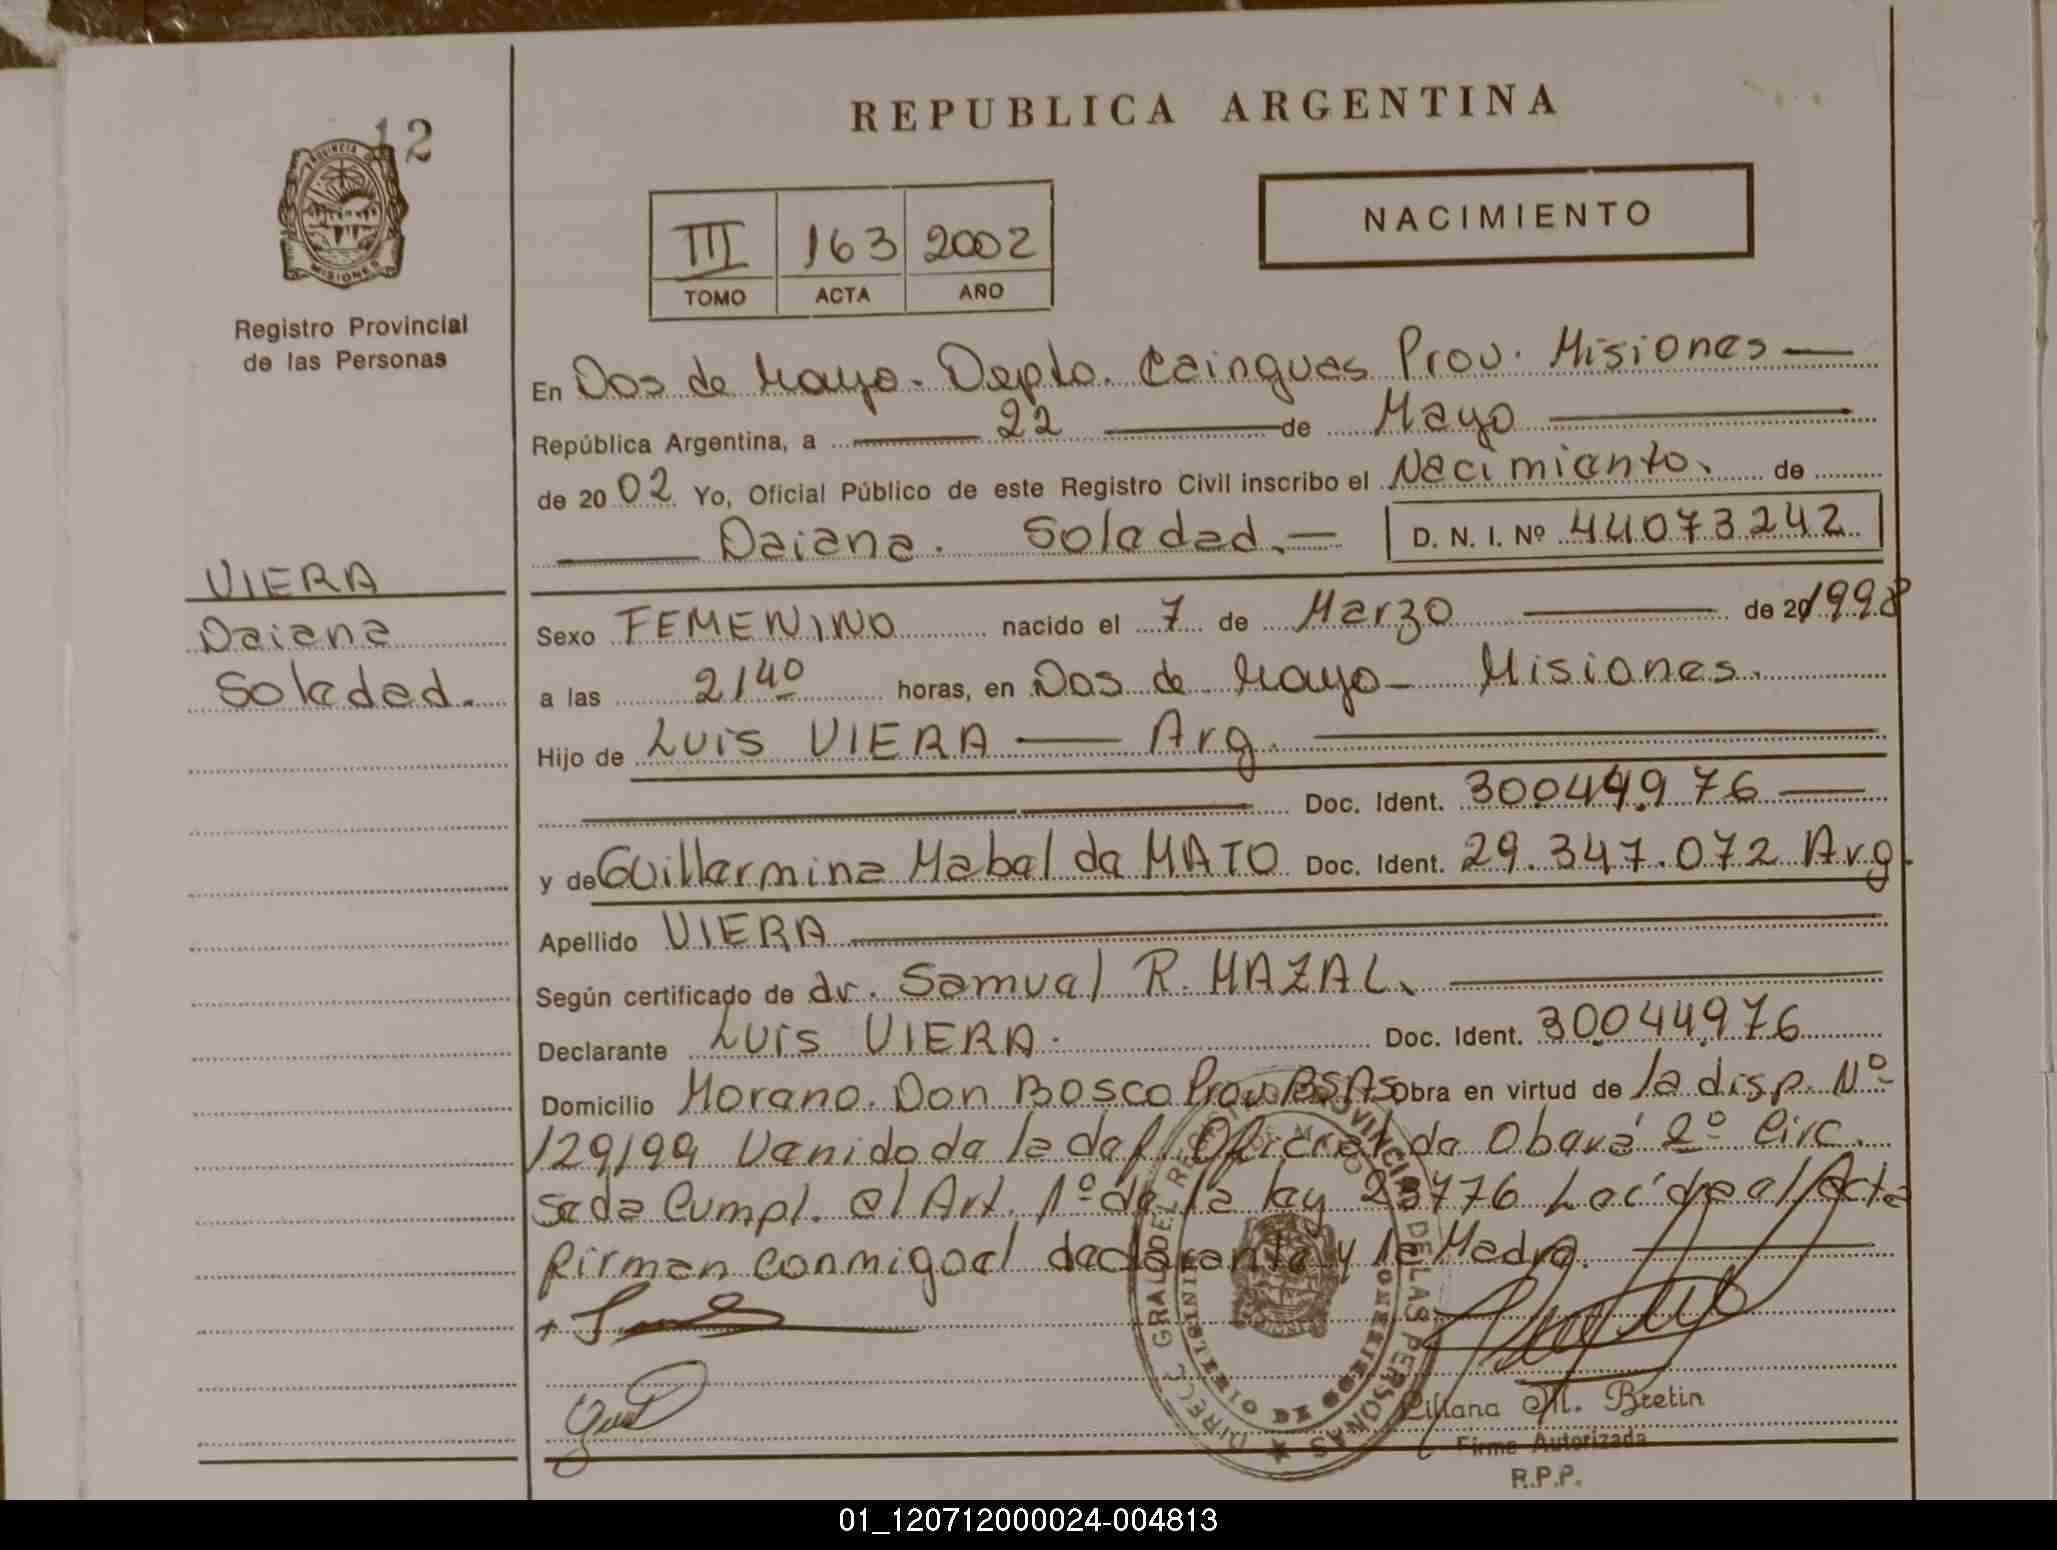 12
PROVINCIA DE
MISIONES
Registro Provincial
de las Personas
VIERA
Daiana
Soledad.
REPUBLICA ARGENTINA
III 163 2002
TOMO ACTA AÑO
NACIMIENTO
En Dos de Mayo. Depto. Cainguas Prov. Misiones
República Argentina, a 22 de Mayo
de 2002 Yo, Oficial Público de este Registro Civil inscribo el Nacimiento. de
Daiana. Soledad. D. N. I. Nº 44073242
Sexo FEMENINO nacido el 7 de Marzo de 20 1998
a las 21 40 horas, en Dos de Mayo - Misiones.
Hijo de Luis VIERA Arg.
Doc. Ident. 30.044.976
y de Guillermina Mabel da MATO Doc. Ident. 29.347.072 Arg.
Apellido VIERA
Según certificado de dr. Samuel R. MAZAL.
Declarante Luis VIERA. Doc. Ident. 30.044.976
Domicilio Moreno. Don Bosco Prov BSAS Obra en virtud de la disp. Nº
129/99 Venido de la def. Oficial de Oberá 2º Circ.
se da Cumpl. al Art. 1º de la ley 23776 Leída el Acta
firman conmigo el declarante y la Madre.
DIRECC. GRAL DEL REG. PROVINCIAL DE LAS PERSONAS
MINISTERIO DE GOBIERNO
Liliana M. Bretin
Firma Autorizada
R.P.P.
01_120712000024-004813